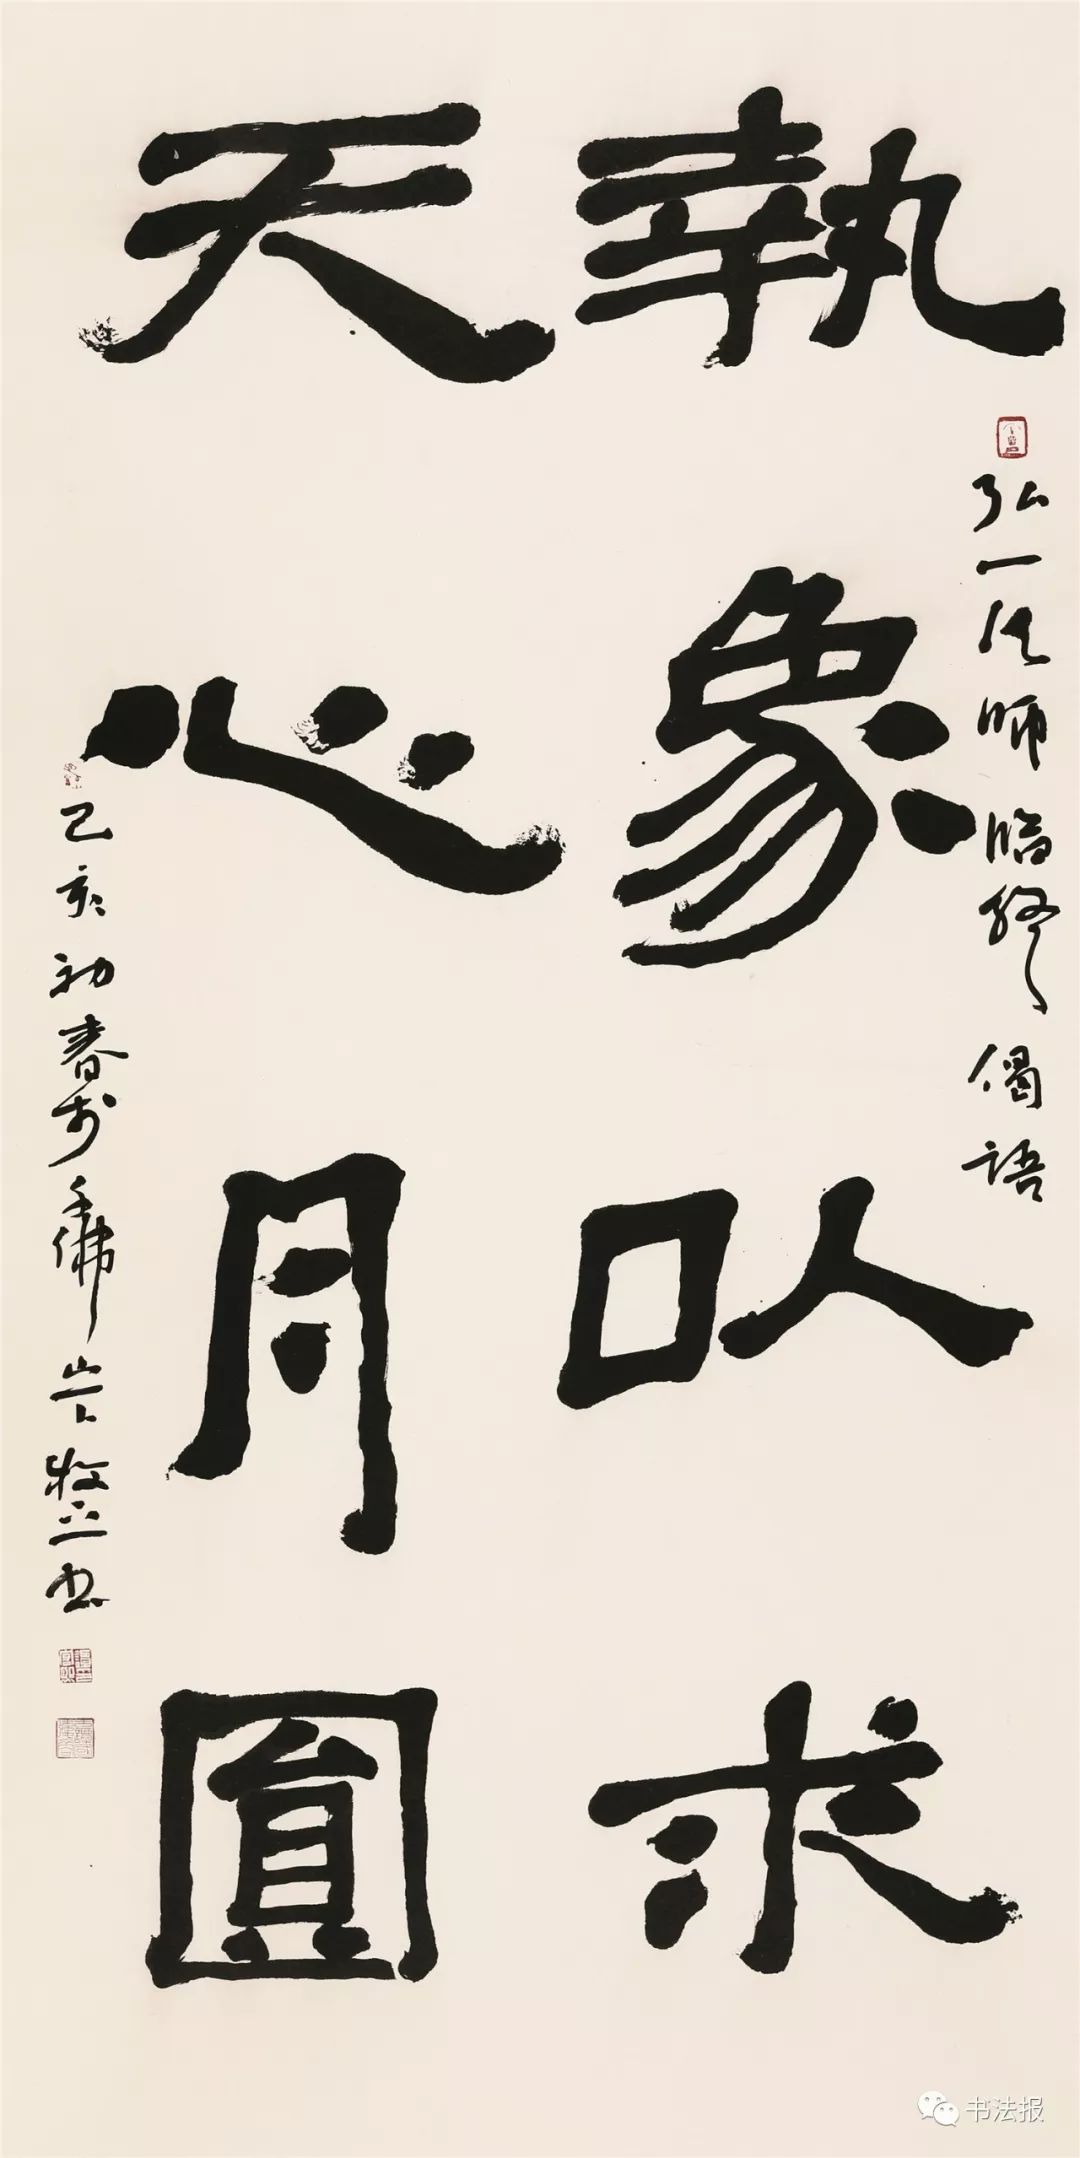 執象以求
弘一法師臨終偈語
天心月圓
己亥初春於千佛山下
书法报